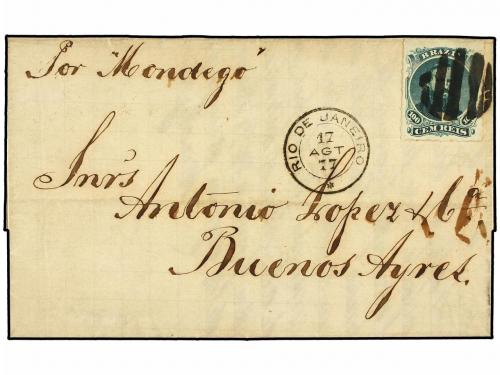 Por "Mondego"
BRAZIL
100
R
CEM REIS
RIO DE JANEIRO
17
AGT
77
Snr̃s
Antonio Lopez & Cª
Buenos Ayres.